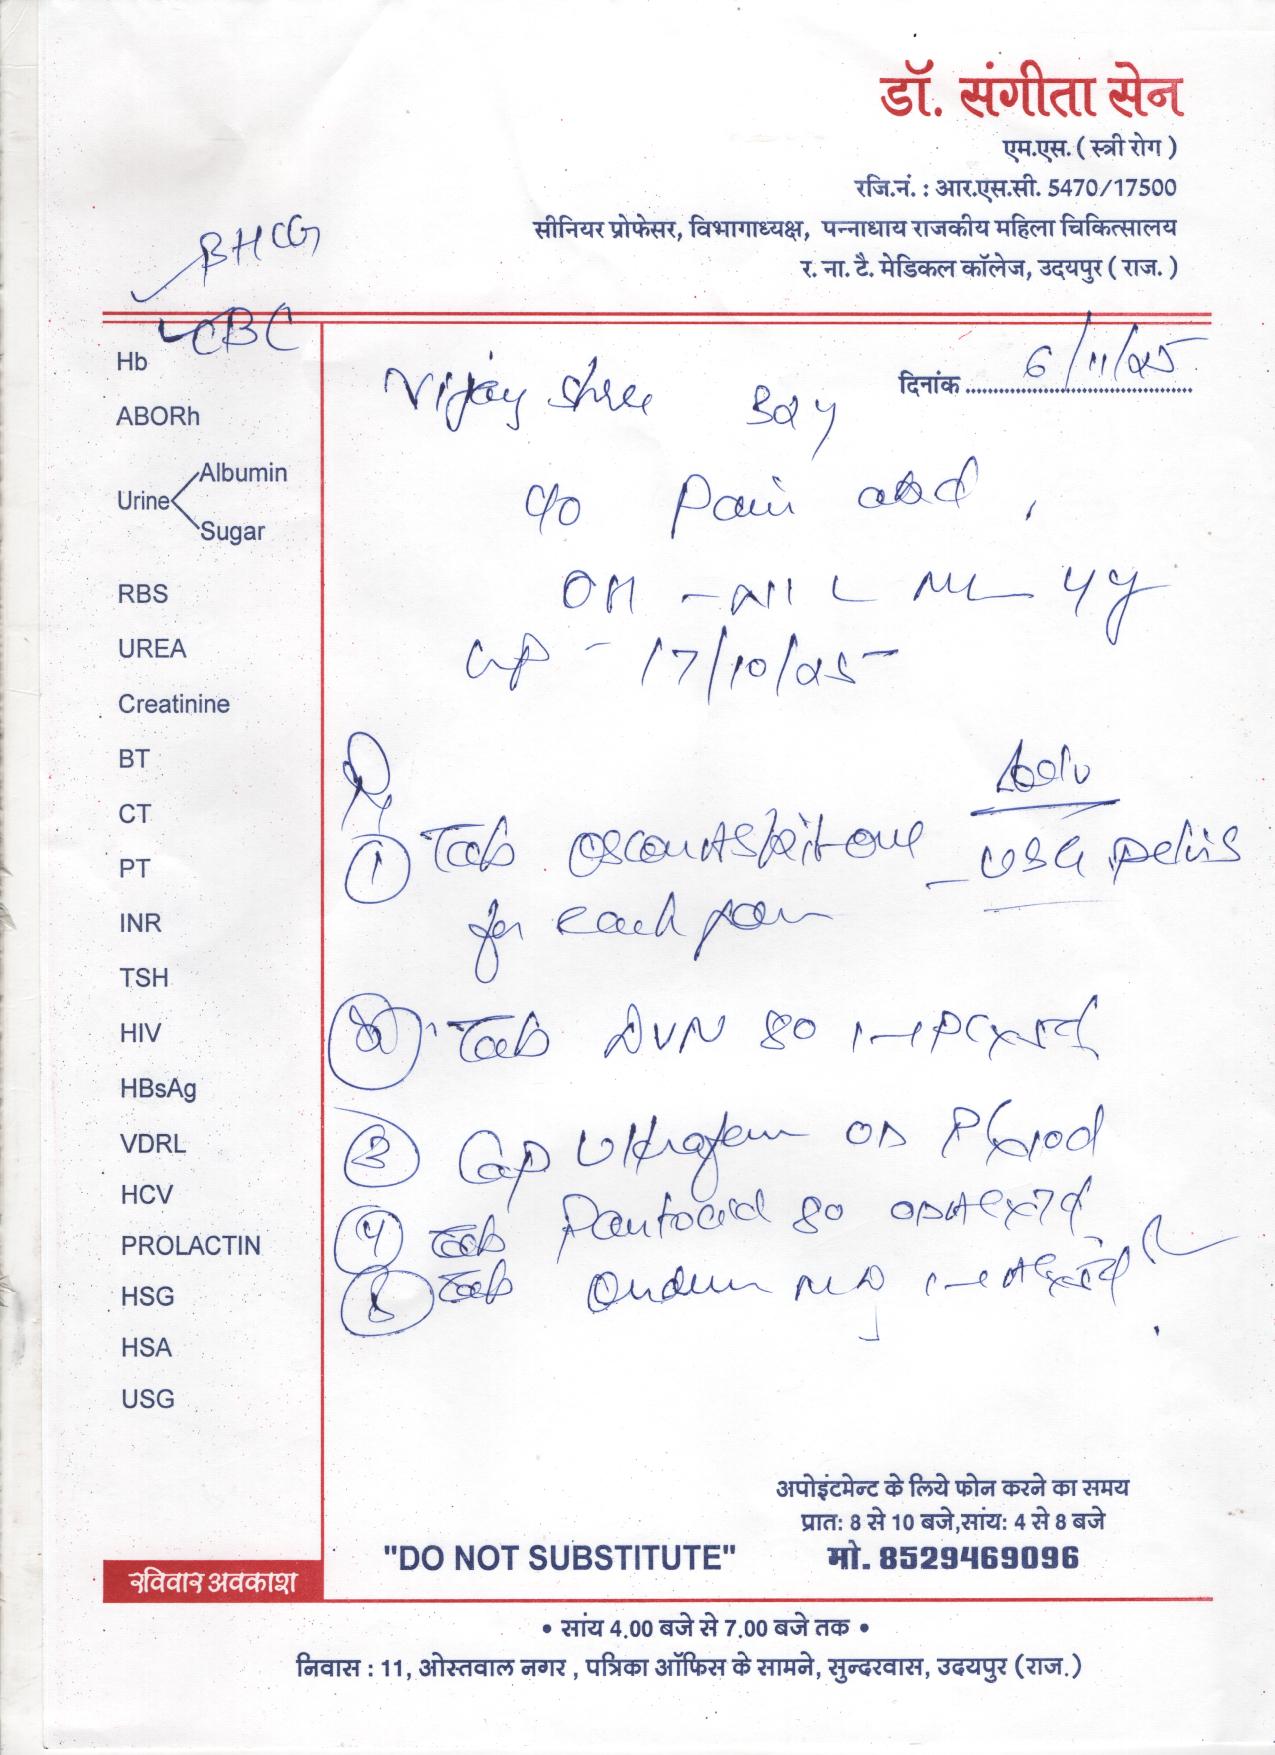 डॉ. संगीता सेन
एम.एस. ( स्त्री रोग )
रजि.नं. : आर.एस.सी. 5470/17500
सीनियर प्रोफेसर, विभागाध्यक्ष, पन्नाधाय राजकीय महिला चिकित्सालय
र. ना. टै. मेडिकल कॉलेज, उदयपुर ( राज. )
BHCG
CBC
Hb
ABORh
Urine
Albumin
Sugar
RBS
UREA
Creatinine
BT
CT
PT
INR
TSH
HIV
HBsAg
VDRL
HCV
PROLACTIN
HSG
HSA
USG
दिनांक 6/11/25
Vijay Shree
c/o Pain abd
OH - NIL ML 4y
- 17/10/25
Adv
USG pelvis
1 Tab
for each
2 Tab 80
3 Cap OD
4 Tab Pantocid 80
5 Tab MD
"DO NOT SUBSTITUTE"
अपोइंटमेन्ट के लिये फोन करने का समय
प्रात: 8 से 10 बजे,सांय: 4 से 8 बजे
मो. 8529469096
रविवार अवकाश
• सांय 4.00 बजे से 7.00 बजे तक •
निवास : 11, ओस्तवाल नगर , पत्रिका ऑफिस के सामने, सुन्दरवास, उदयपुर (राज.)